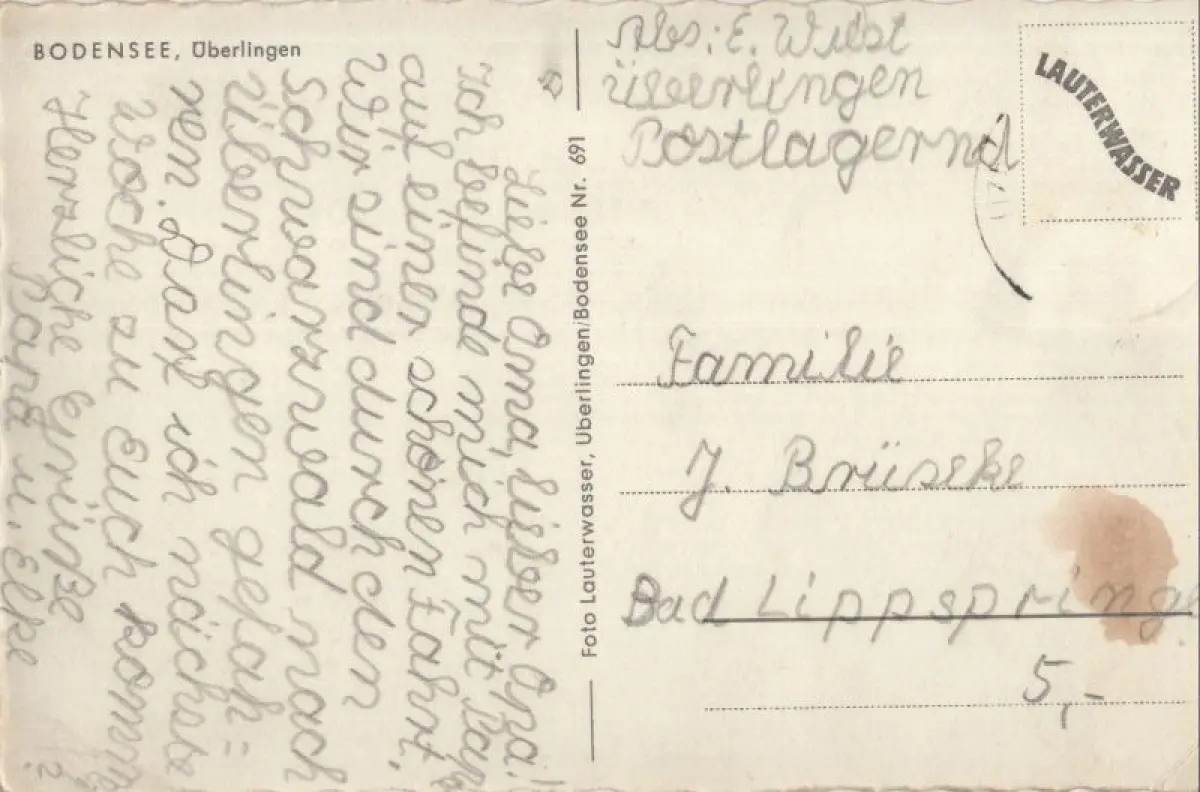 BODENSEE, Überlingen
Liebe Oma, lieber Opa!
Ich befinde mich mit Papa
auf einer schönen Fahrt.
Wir sind durch den
Schwarzwald nach
Überlingen gefah=
ren. Darf ich nächste
Woche zu Euch kommen
?
Herzliche Grüße
Papa u. Elke
Foto Lauterwasser, Überlingen/Bodensee Nr. 691
Abs: E.
Überlingen
Postlagernd
LAUTERWASSER
Familie
J. Brüseke
Bad Lippspringe
5,-